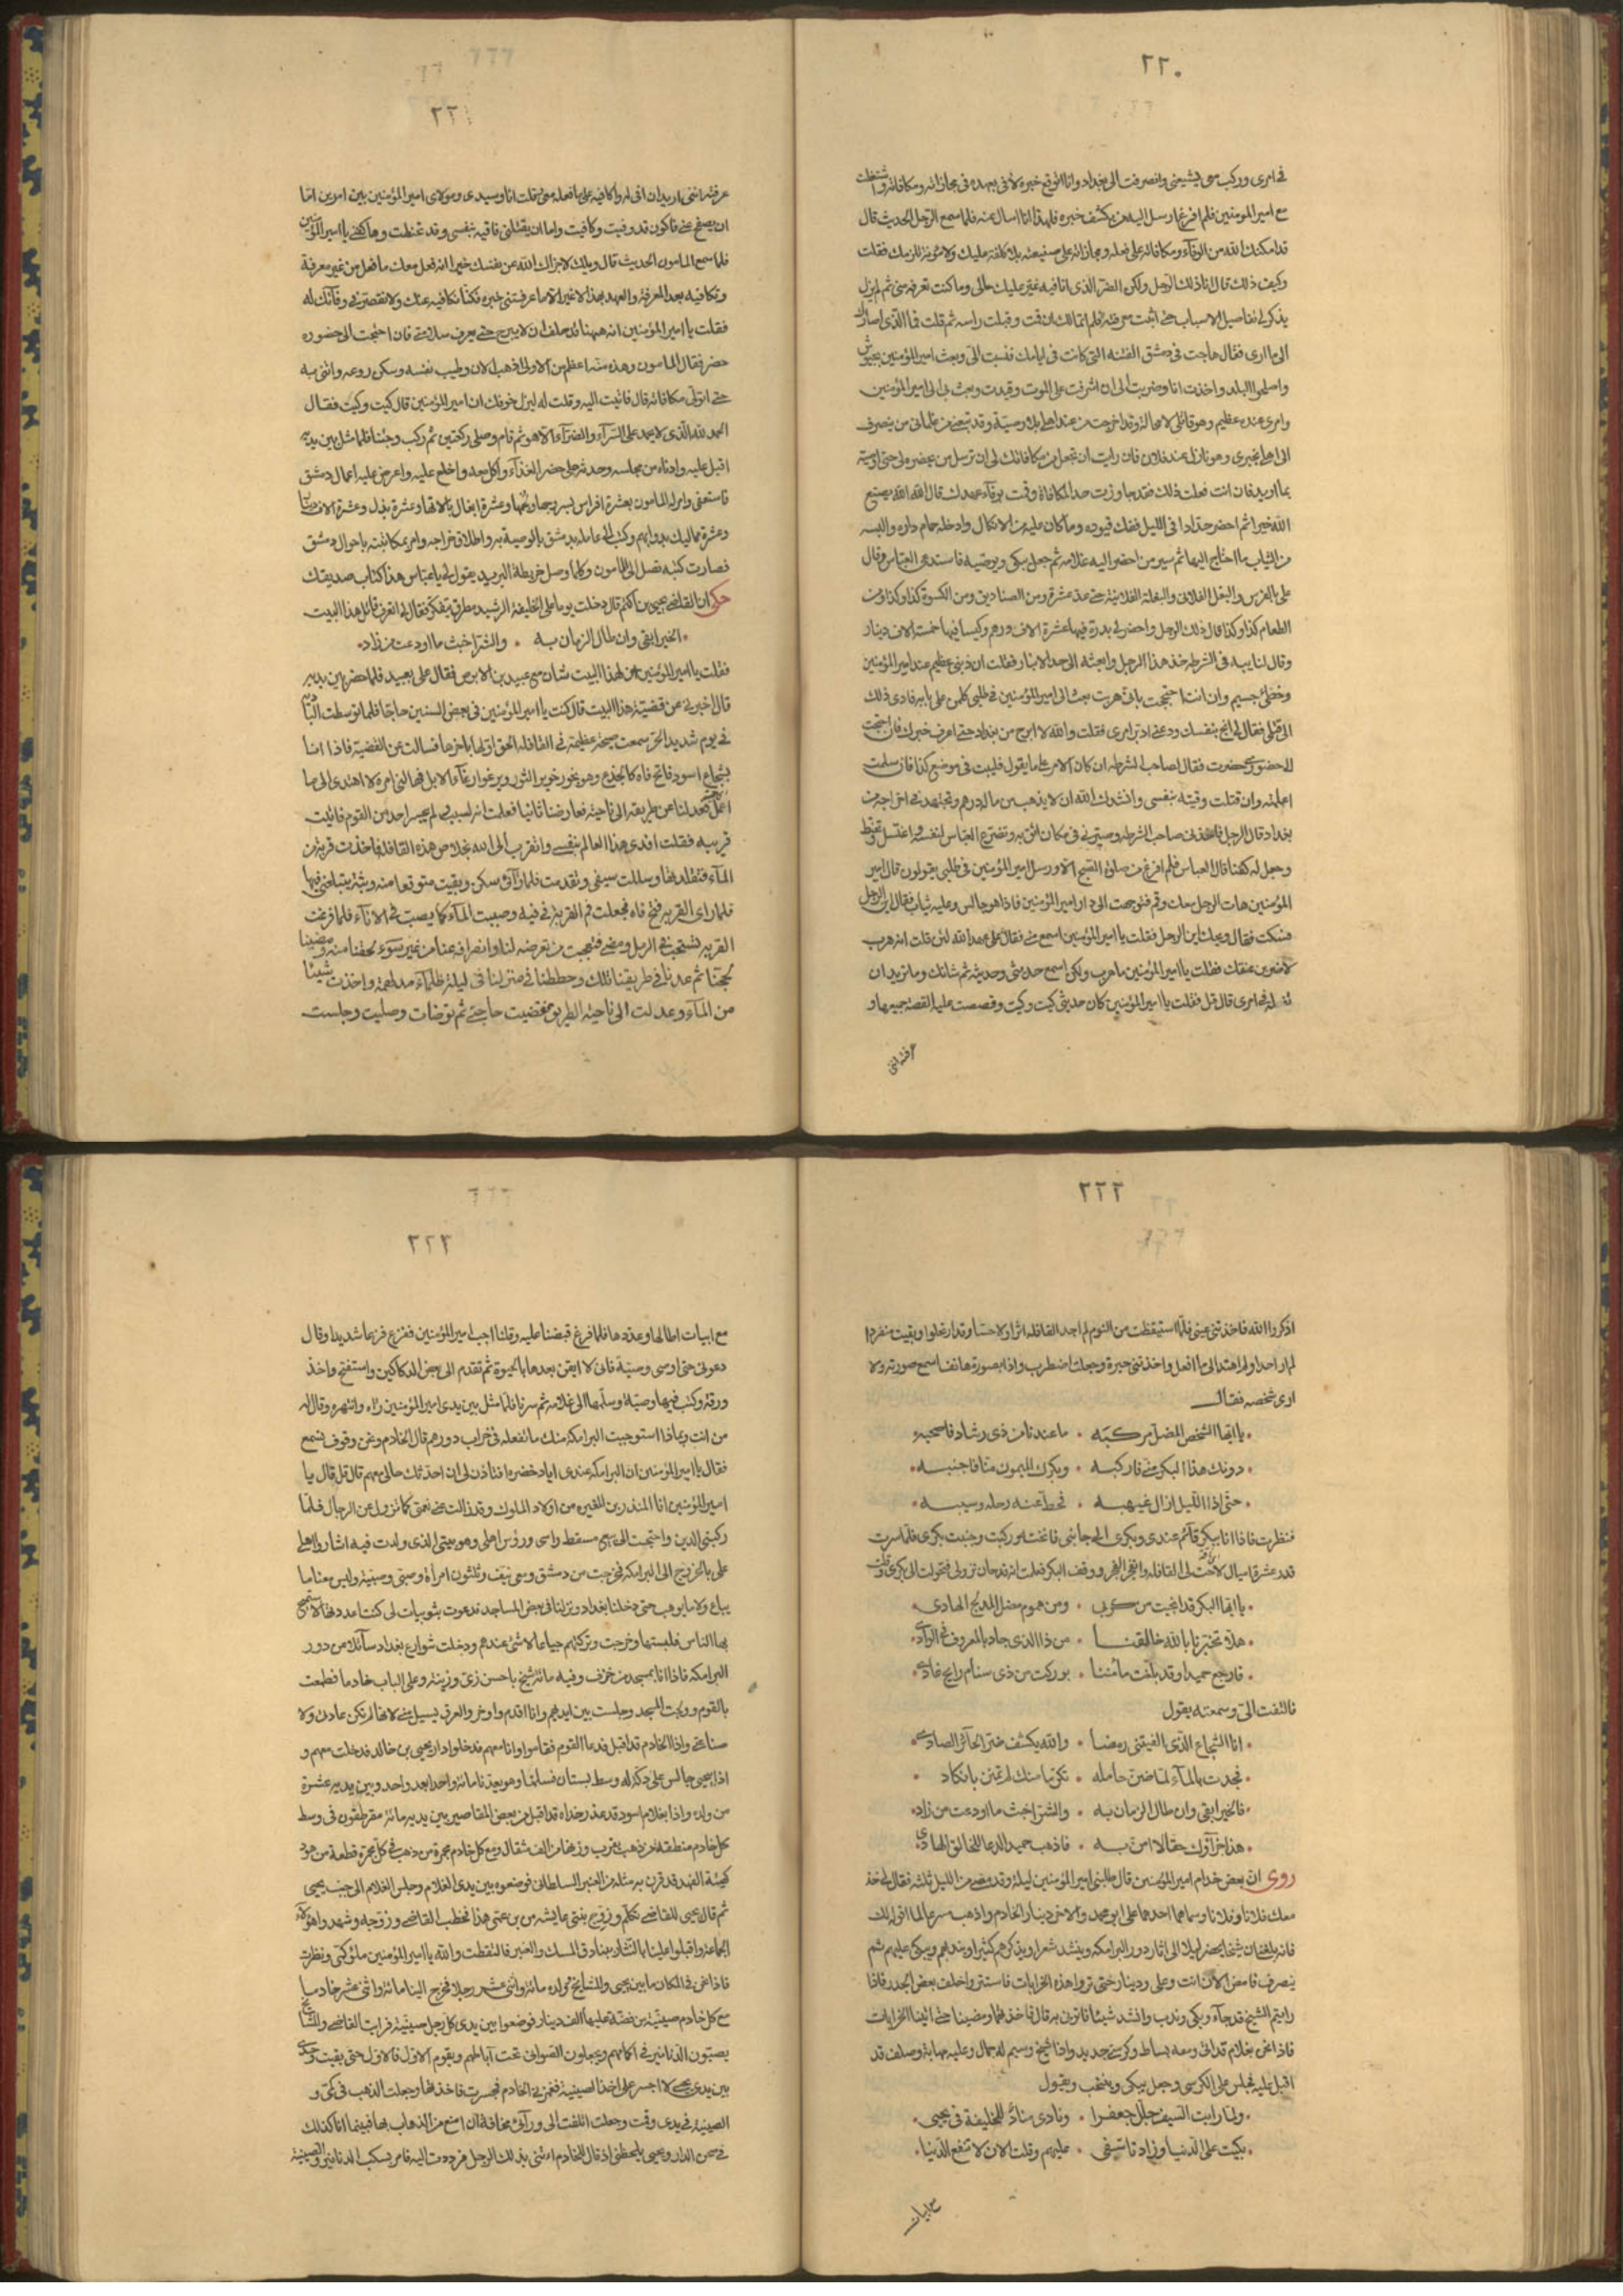 ٢٢٠
في امري وركب معي يشيعني وانصرفت الى بغداد وانا اتوقع خبره لأفي بعهده في مجازاته ومكافاته واشتغلت
مع امير المومنين فلم افرغ ارسل اليه من يكشف خبره فلهذا انا اسال عنه فلما سمع الرجل الحديث قال
قد امكنك الله من الوفآء ومكافاته على فعله ومجازاته على صنيعته بلا كلفة عليك ولا مؤنة تلزمك فقلت
وكيف ذلك قال انا ذلك الرجل ولكن الضر الذي انا فيه غير عليك حالي وما كنت تعرفه مني ثم لم يزل
يذكر لي تفاصيل الاسباب حتى اثبت معرفته فلم اتمالك ان قمت وقبلت راسه ثم قلت فما الذي اصارك
الى ما ارى فقال هاجت في دمشق الفتنه التي كانت في ايامك فنسبت الي وبعث امير المؤمنين بجيوش
واصلحوا البلد واخذت انا وضربت الى ان اشرفت على الموت وقيدت وبعث بي الى امير المؤمنين
وامري عنده عظيم وهو قاتلي لا محالة وقد اخرجت من عند اهلي بلا وصية وقد تبعني من غلماني من ينصرف
الى اهلي بخبري وهو نازل عند فلان فان رايت ان تجعل من مكافاتك لي ان ترسل من يحضره لي حتى اوصيه
بما اريد فان انت فعلت ذلك فقد جاوزت حد المكافاة وقمت بوفآء عهدك قال الله الله يصنع
الله خيرا ثم احضر حدادا في الليل ففك قيوده وما كان عليه من الانكال وادخله حمام داره والبسه
من الثياب ما احتاج اليها ثم سير من احضر اليه غلامه ثم جعل يبكي ويوصيه فاستدعى العباس وقال
علي بالفرس والبغل الفلاني والبغلة الفلانية حتى عد عشرة ومن الصناديق ومن الكسوة كذا وكذا ومن
الطعام كذا وكذا قال ذلك الرجل واحضر لي بدرة فيها عشرة الاف درهم وكيسا فيها خمسة الاف دينار
وقال لنايبه في الشرطه خذ هذا الرجل وابعثه الى حد الانبار فقلت ان ذنبي عظيم عند امير المؤمنين
وخطئي جسيم وان انت احتججت باني هربت بعث الى امير المؤمنين في طلبي كل من على بابه فارد ى ذلك
الى قتلي فقال لي انج بنفسك ودعني ادبر امري فقلت والله لا ابرح من بغداد حتى اعرف خبرك فان احتجت
الى حضوري حضرت فقال لصاحب الشرطه ان كان الامر على ما يقول فليبت في موضع كذا فان سلمت
اعلمته وان قتلت وقيته بنفسي وانشدك الله ان لا يذهب من ماله درهم وتجتهد في اخراجه من
بغداد قال الرجل فاخذني صاحب الشرطه وصيرني في مكان اثق به وتفرغ العباس لنفسه واغتسل وتحنط
وجعل له كفنا قال العباس فلم افرغ من صلوة الصبح الا ورسل امير المؤمنين في طلبي يقولون قال امير
المؤمنين هات الرجل معك وقم فتوجهت الى دار امير المؤمنين فاذا هو جالس وعليه ثياب فقال اين الرجل
فسكت فقال ويحك اين الرجل فقلت يا امير المؤمنين اسمع مني فقال علي عهد الله لئن قلت انه هرب
لاضربن عنقك فقلت يا امير المؤمنين ما هرب ولكن اسمع حديثي وحديثه ثم شانك وما تريد ان
تفعله في امري قال قل فقلت يا امير المؤمنين كان حديثي كيت وكيت وقصصت عليه القصة جميعها و
عرفته انني
٢٢١
عرفته انني اريد ان افي له واكافيه على ما فعله معي قلت انا وسيدي ومولاي امير المؤمنين بين امرين اما
ان يصفح عني فاكون قد وفيت وكافيت واما ان يقتلني فاقيه بنفسي وقد تحنطت وها كفني يا امير المؤمنين
فلما سمع المامون الحديث قال ويلك لا جزاك الله عن نفسك خيرا انه فعل معك ما فعل من غير معرفة
وتكافيه بعد المعرفة والعهد بهذا لا غير الا ما عرفتني خبره فكنا نكافيه عنك ولا نقصر في وفآئك له
فقلت يا امير المؤمنين انه ههنا قد حلف ان لا يبرح حتى يعرف سلامتي فان احتجت الى حضوره
حضر فقال المامون وهذه منة اعظم من الاولى اذهب الان وطيب نفسه وسكن روعه وائتني به
حتى اتولى مكافاته قال فاتيت اليه وقلت له ليزل خوفك ان امير المؤمنين قال كيت وكيت فقال
الحمد لله الذي لا يحمد على السرآء والضرآء الا هو ثم قام وصلى ركعتين ثم ركب وجئنا فلما مثل بين يديه
اقبل عليه وادناه من مجلسه وحدثه حتى حضر الغذآء واكل معه واخلع عليه واعرض عليه اعمال دمشق
فاستعفى وامر له المامون بعشرة افراس بسروجها ولجمها وعشرة ابغال بالاتها وعشرة بذل وعشرة الاف دينار
وعشرة مماليك بدوابهم وكتب الى عامله بدمشق بالوصية به واطلاق خراجه وامر بمكاتبته باحوال دمشق
فصارت كتبه تصل الى المامون وكلما وصل خريطة البريد يقول لي يا عباس هذا كتاب صديقك
حكى ان القاضي يحيى بن اكثم قال دخلت يوما على الخليفة الرشيد مطرق يتفكر فقال لي اتعرف قائل هذا البيت
الخير ابقى وان طال الزمان به • والشر اخبث ما اودعت من زاد
فقلت يا امير المؤمنين ان لهذا البيت شان مع عبيد بن الابرص فقال علي بعبيد فلما حضر بين يديه
قال اخبرني عن قضية هذا البيت قال كنت يا امير المؤمنين في بعض السنين حاجا فلما توسطت البادية
في يوم شديد الحر سمعت صيحة عظيمة في القافلة الحق اولها باخرها فسالت عن القضية فاذا انا
بشجاع اسود فاتح فاه كالجذع وهو يخور خوير الثور ويرغو ارغآء الابل فهالني امره لا اهتدى الى ما
اعمل فعدلنا عن طريقه الى ناحية فعارضنا ثانيا فعلمت انه لسبب لم يجسر احد من القوم فاتيت
قريبه فقلت افدى هذا العالم بنفسي واتقرب الى الله بخلاص هذه القافلة فاخذت قربة من
المآء فتقلدتها وسللت سيفي وتقدمت فلما رآني سكن وبقيت متوقعا منه وثبة يبتلعني فيها
فلما راى القربه فتح فاه فجعلت فم القربة في فيه وصببت المآء كما يصب في الانآء فلما فرغت
القربه تسحب في الرمل ومضى فتعجبت من تعرضه لنا وانصرافه عنا من غير سوء لحقنا منه ومضينا
لحجنا ثم عدنا في طريقنا تلك وحططنا في منزلنا في ليلة ظلمآء مدلهمة واخذت شيئا
من المآء وعدلت الى ناحية الطريق فقضيت حاجتي ثم توضات وصليت وجلست
٢٢٢
اذكر الله فاخذتني عيني فلما استيقظت من النوم لم اجد القافله اثرا ولا حسا وقد ارتحلوا وبقيت منفردا
لم ار احدا ولم اهتد الى ما افعل واخذتني حيرة وجعلت اضطرب واذا بصوت هاتف اسمع صوته ولا
ارى شخصه فقال
يا ايها الشخص المضل مركبه • ما عنده من ذي رشاد فاصحبه
دونك هذا البكر مني فاركبه • وبكرك الميمون منا فاجنبه
حتى اذا الليل ازال غيهبه • فحط عنه رحله وسيبه
فنظرت فاذا انا ببكر قآئم عندي وبكري الى جانبي فانخته وركبت وجنبت بكري فلما سرت
قدر عشرة اميال لاحت لي القافله وانفجر الفجر ووقف البكر فعلمت انه قد حان نزولي فتحولت الى بكري وقلت
يا ايها البكر قد انجيت من كربي • ومن هموم مضل المدلج الهادي
هلا تخبرنا بالله خالقنا • من ذا الذي جاد بالمعروف في الوادي
فارجع حميدا وقد بلغت مامننا • بوركت من ذي سنام رايح غادي
فالتفت الي وسمعته يقول
انا الشجاع الذي الفيتني رمضا • والله يكشف ضر الحآئر الصادي
فجدت بالمآء لما ضن حامله • تكرما منك لم تمنن بانكاد
فالخير ابقى وان طال الزمان به • والشر اخبث ما اودعت من زاد
هذا جزآؤك حقا لا امن به • فاذهب حميدا لدعا للخالق الهادي
روى ان بعض خدام امير المؤمنين قال طلبني امير المؤمنين ليلة وقد مضى من الليل ثلثه فقال لي خذ
معك فلانا وفلانا وسماهما احدهما علي ابو محمد والاخر دينار الخادم واذهب مسرعا لما اقول لك
فانه بلغني ان شيخا يحضر ليلا الى اثار دور البرامكه وينشد شعرا ويذكرهم كثيرا ويندبهم ويبكي عليهم ثم
ينصرف فامض الآن انت وعلي ودينار حتى تروا هذه الخرابات فاستتروا خلف بعض الجدر فاذا
رايتم الشيخ قد جآء وبكى وندب وانشد شيئا فاتوني به قال فاخذتهما ومضينا حتى اتينا الخرابات
فاذا نحن بغلام قد اتى ومعه بساط وكرسي جديد واذا شيخ وسيم له جمال وعليه مهابة وصلف قد
اقبل عليه فجلس على الكرسي وجعل يبكي وينتحب ويقول
ولما رايت السيف جلل جعفرا • ونادى مناد للخليفة في يحيى
بكيت على الدنيا وزاد تاسفي • عليهم وقلت الان لا تنفع الدنيا
مع ابيات
٢٢٣
مع ابيات اطالها وعددها فلما فرغ قبضنا عليه وقلنا اجب امير المؤمنين ففزع فزعا شديدا وقال
دعوني حتى اوصي وصية فاني لا ايقن بعدها بالحيوة ثم تقدم الى بعض الدكاكين واستفتح واخذ
ورقة وكتب فيها وصيته وسلمها الى غلامه ثم سرنا فلما مثل بين يدي امير المؤمنين زاه وانتهره وقال له
من انت وبماذا استوجبت البرامكه منك ما تفعله في خراب دورهم قال الخادم ونحن وقوف نسمع
فقال يا امير المؤمنين ان البرامكه عندي اياد خضره افتاذن لي ان احدثك حالي معهم قال قل قال يا
امير المؤمنين انا المنذر بن المغيره من اولاد الملوك وقد زالت عني نعمتي كما تزول عن الرجال فلما
ركبني الدين واحتجت الى بيع مسقط راسي ورؤس اهلي وهو بيتي الذي ولدت فيه اشاروا اهلي
علي بالخروج الى البرامكه فخرجت من دمشق ومعي نيف وثلثون امراة وصبي وصبية وليس معنا ما
يباع ولا ما يوهب حتى دخلنا بغداد ونزلنا في بعض المساجد فدعوت بثويبات لي كنت اعددتها لاستميح
بها الناس فلبستها وخرجت وتركتهم جياعا لا شئ عندهم ودخلت شوارع بغداد سآئلا من دور
البرامكه فاذا انا بمسجد مزخرف وفيه مائة شيخ باحسن زي وزينة وعلى الباب خادما فطمعت
بالقوم وولجت المسجد وجلست بين ايديهم وانا اقدم واوخر والعرق يسيل مني لانها لم تكن عادتي ولا
صناعتي واذا الخادم قد اقبل فدعا القوم فقاموا وانا معهم فدخلوا دار يحيى بن خالد فدخلت معهم و
اذا يحيى جالس على دكة له وسط بستان فسلمنا وهو يعدنا مائة واحدا بعد واحد وبين يديه عشرة
من ولده واذا بغلام اسود قد عذر خداه قد اقبل من بعض المقاصير بين يديه مائة مقرطقون في وسط
كل خادم منطقة من ذهب يقرب وزنها من الف مثقال ومع كل خادم مجمرة من ذهب في كل مجمرة قطعة من عود
كهيئة الفهد قد قرن به مثله من العنبر السلطاني فوضعوه بين يدي الغلام وجلس الغلام الى جنب يحيى
ثم قال يحيى للقاضي تكلم وزوج بنتي عايشه من بن عمي هذا فخطب القاضي وزوجه وشهد واهؤلاء
الجماعة واقبلوا علينا بالنثار ببنادق المسك والعنبر فالتقطت والله يا امير المؤمنين ملؤ كمي ونظرت
فاذا نحن في المكان ما بين يحيى والمشايخ وولده مائة واثنى عشر رجلا فخرج الينا مائة واثنى عشر خادما
مع كل خادم صينية من فضة عليها الف دينار فوضعوا بين يدي كل رجل صينية فرايت القاضي والمشايخ
يصبون الدنانير في اكمامهم ويجعلون الصواني تحت آباطهم ويقوم الاول فالاول حتى بقيت وحدي
بين يدي يحيى لا اجسر على اخذ الصينية فغمزني الخادم فجسرت فاخذتها وجعلت الذهب في كمي و
الصينية في يدي وقمت وجعلت التفت الى ورآئي مخافة ان امنع من الذهاب بها فبينما انا كذلك
في صحن الدار ويحيى يلحظني اذ قال للخادم ائتني بذلك الرجل فرددت اليه فامر بسكب الدنانير والصينية